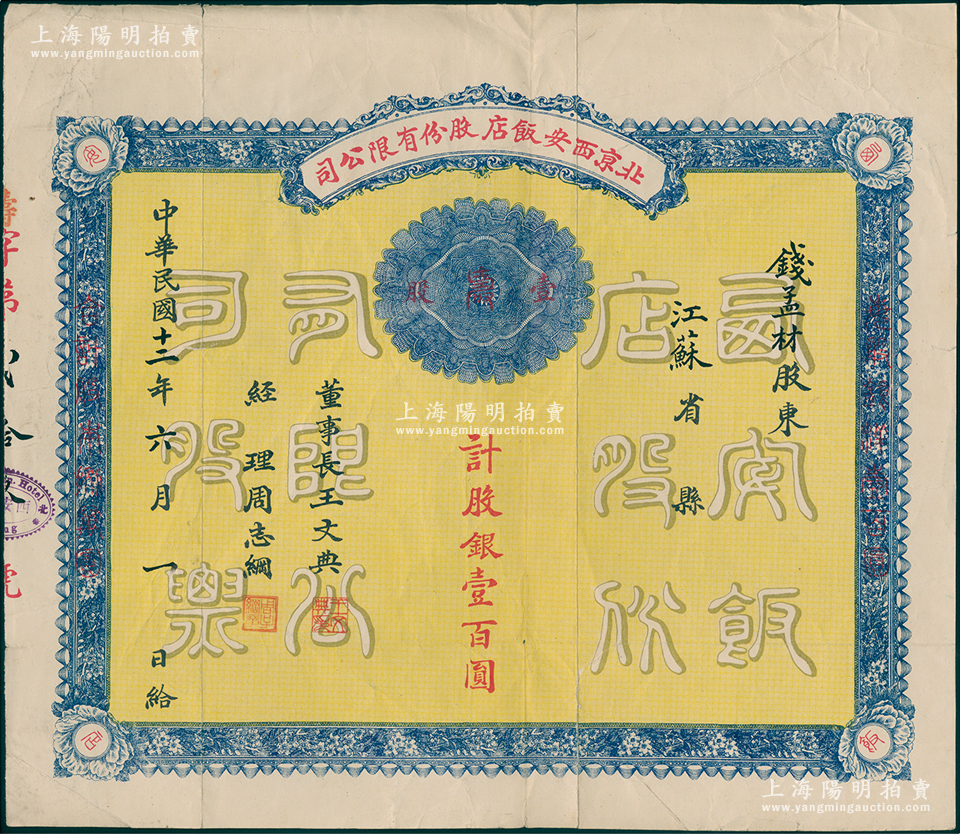 上海陽明拍賣
www.yangmingauction.com
北京西安飯店股份有限公司
壹
股
錢孟材股東
江蘇省 縣
計股銀壹百圓
董事長王文典
經理周志綱
中華民國十二年六月一日給
西安飯
店股份
有限公
司股票
字第
號
Hotel
上海陽明拍賣
www.yangmingauction.com
上海陽明拍賣
www.yangmingauction.com